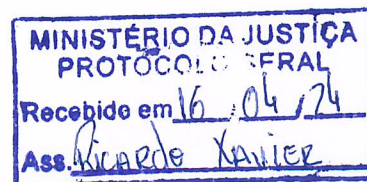 MINISTÉRIO DA JUSTIÇA
PROTOCOLO GERAL
Recebido em 16 / 04 / 24
Ass. RICARDO XAVIER